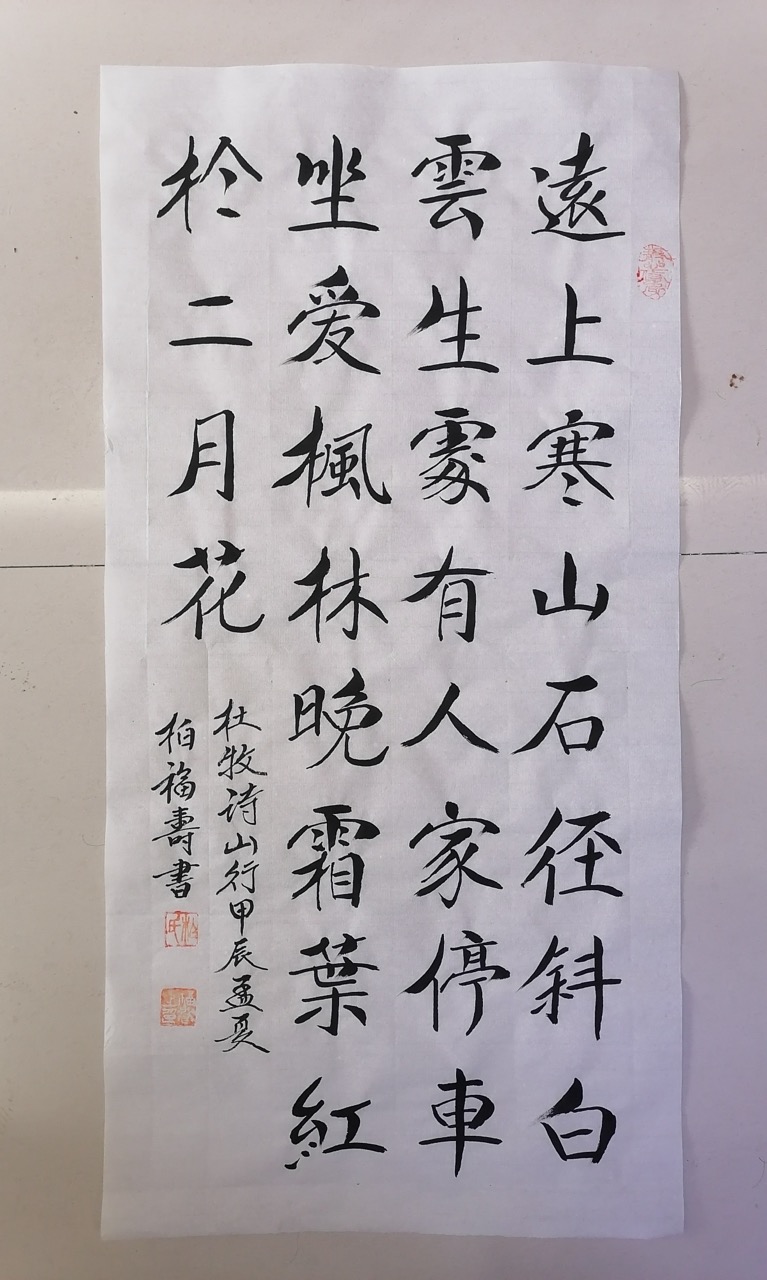 遠上寒山石径斜白
雲生處有人家停車
坐爱楓林晚霜葉紅
於二月花
杜牧诗山行甲辰孟夏
柏福壽書